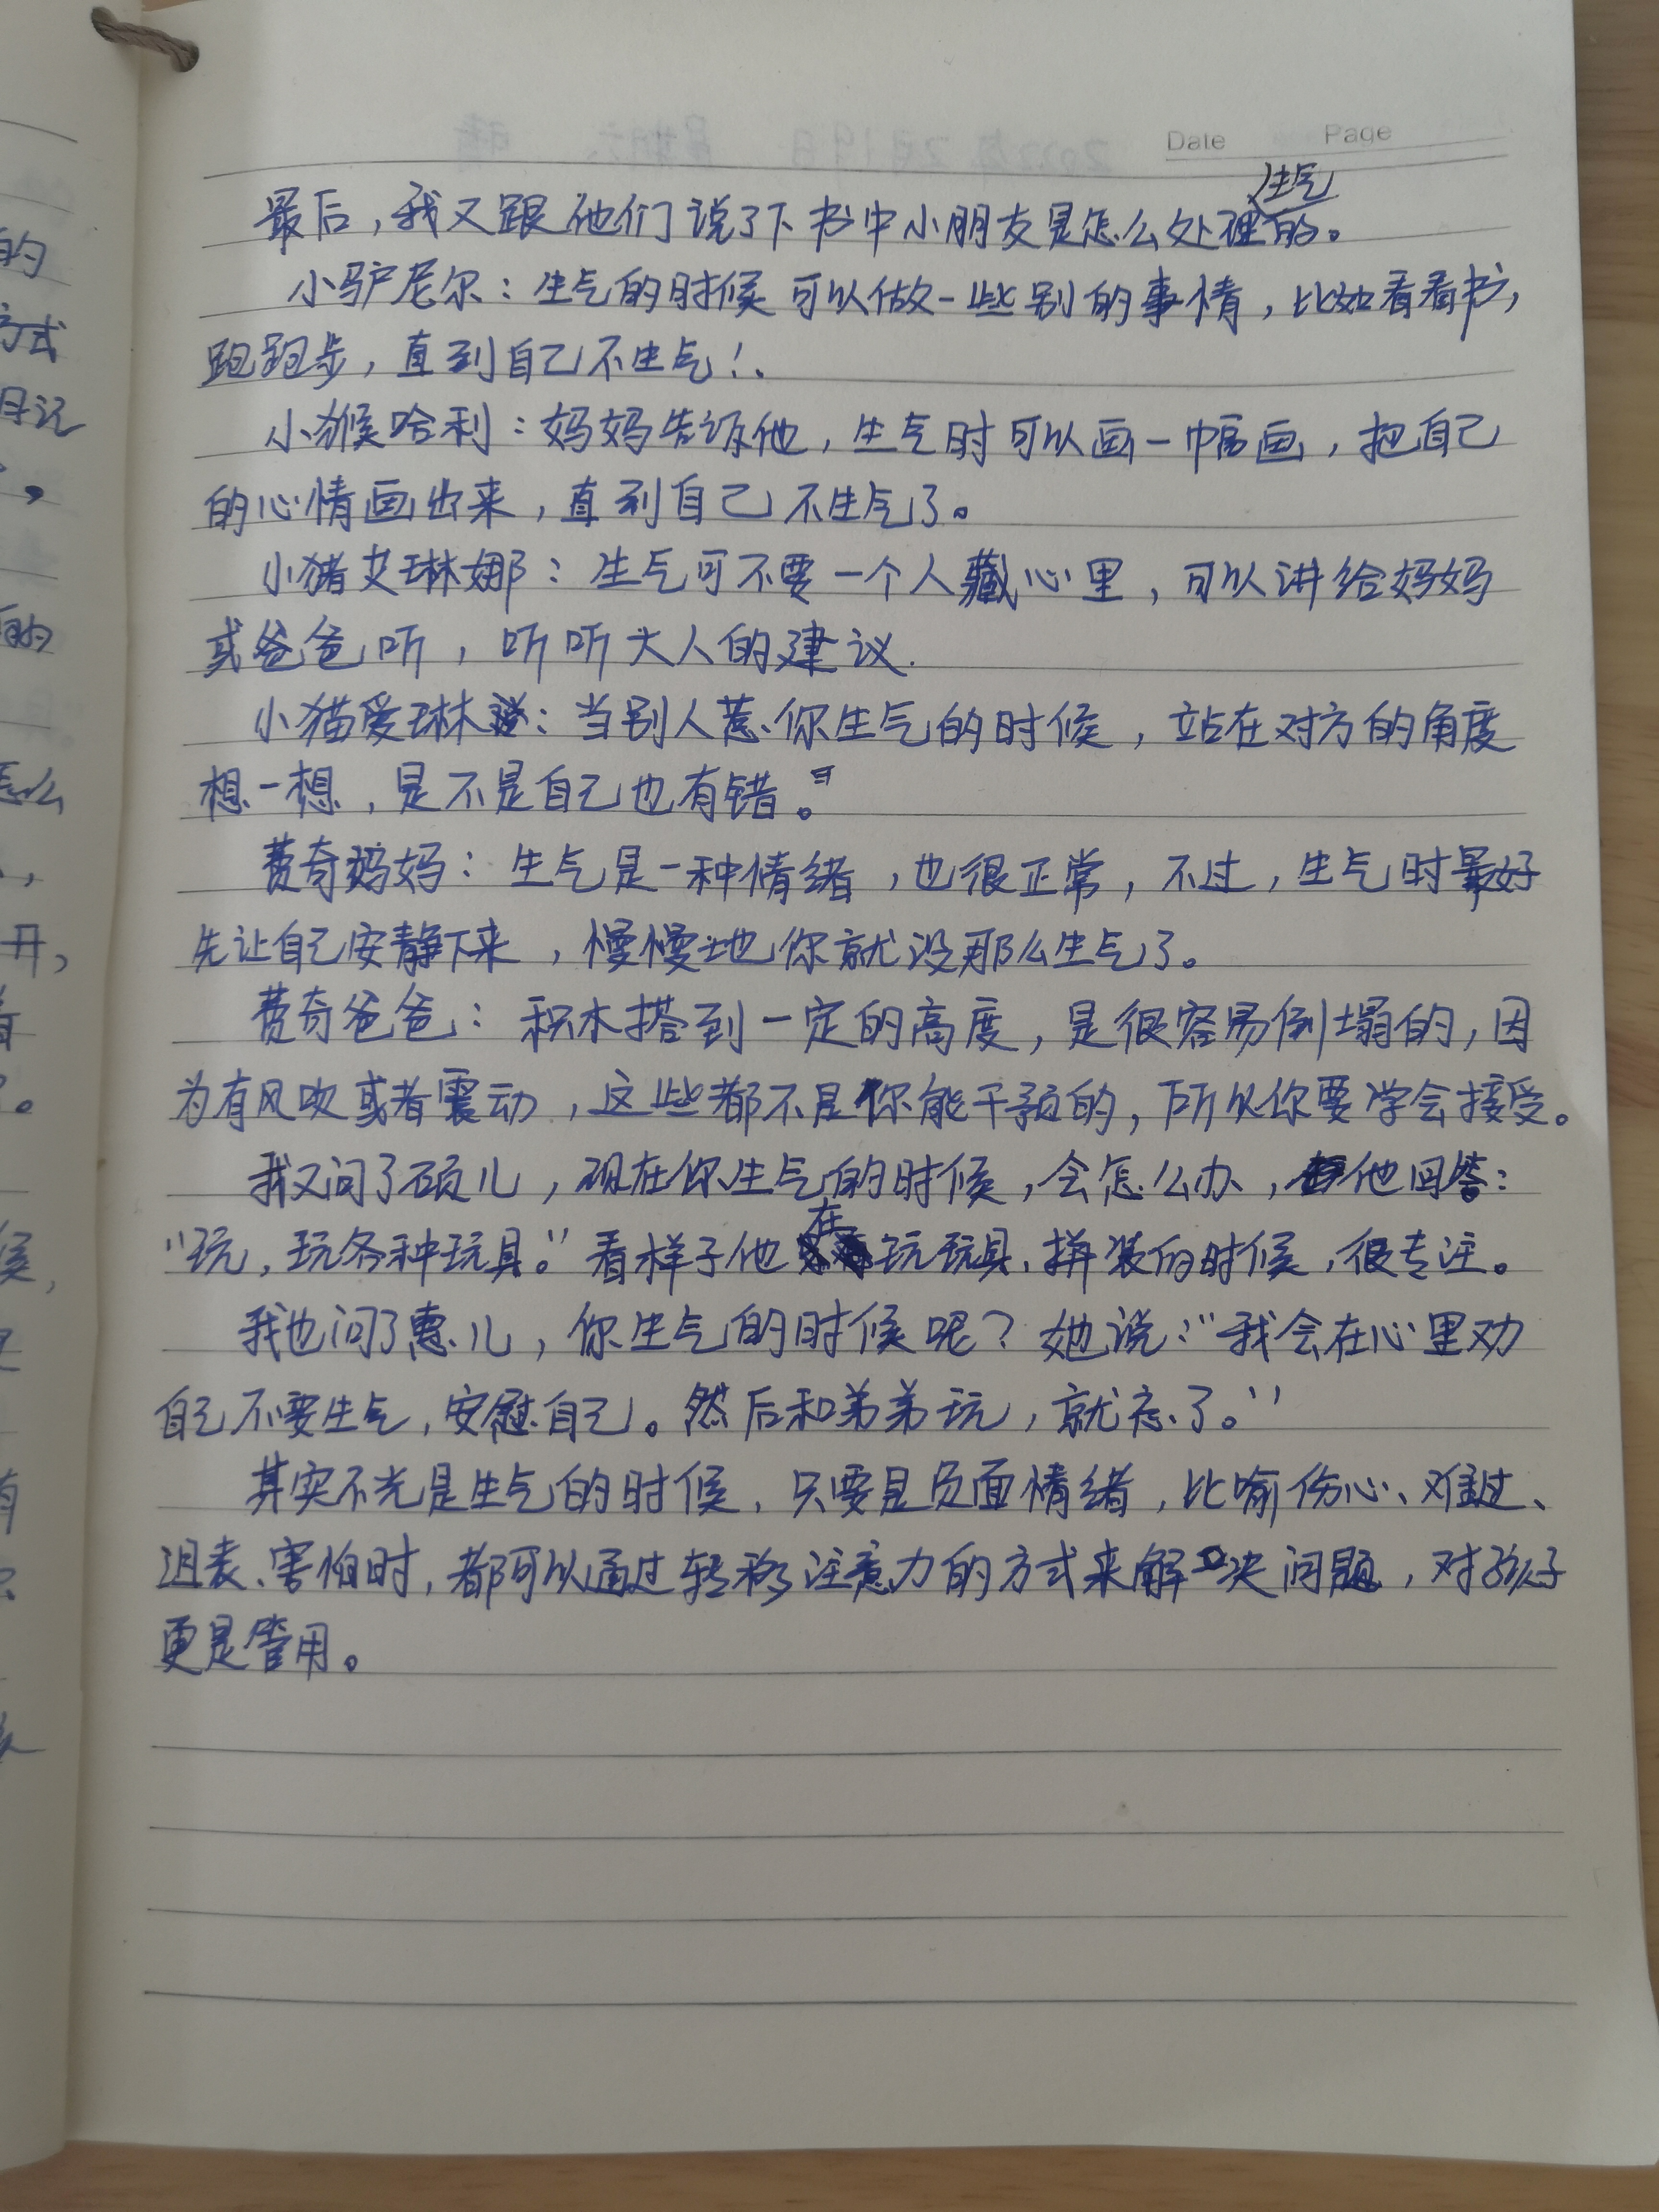 Date Page
最后，我又跟他们说了下书中小朋友是怎么处理生气的。
小驴尼尔：生气的时候可以做一些别的事情，比如看看书，
跑跑步，直到自己不生气！.
小猴哈利：妈妈告诉他，生气时可以画一幅画，把自己
的心情画出来，直到自己不生气了。
小猪艾琳娜：生气可不要一个人藏心里，可以讲给妈妈
或爸爸听，听听大人的建议.
小猫爱琳说：当别人惹你生气的时候，站在对方的角度
想一想，是不是自己也有错。
费奇妈妈：生气是一种情绪，也很正常，不过，生气时最好
先让自己安静下来，慢慢地你就没那么生气了。
费奇爸爸：积木搭到一定的高度，是很容易倒塌的，因
为有风吹或者震动，这些都不是你能干预的，所以你要学会接受。
我又问了硕儿，现在你生气的时候，会怎么办，他回答：
“玩，玩各种玩具。”看样子他在玩玩具、拼装的时候，很专注。
我也问了惠儿，你生气的时候呢？她说：“我会在心里劝
自己不要生气，安慰自己。然后和弟弟玩，就忘了。”
其实不光是生气的时候，只要是负面情绪，比喻伤心、难过、
沮丧、害怕时，都可以通过转移注意力的方式来解决问题，对孩子
更是管用。